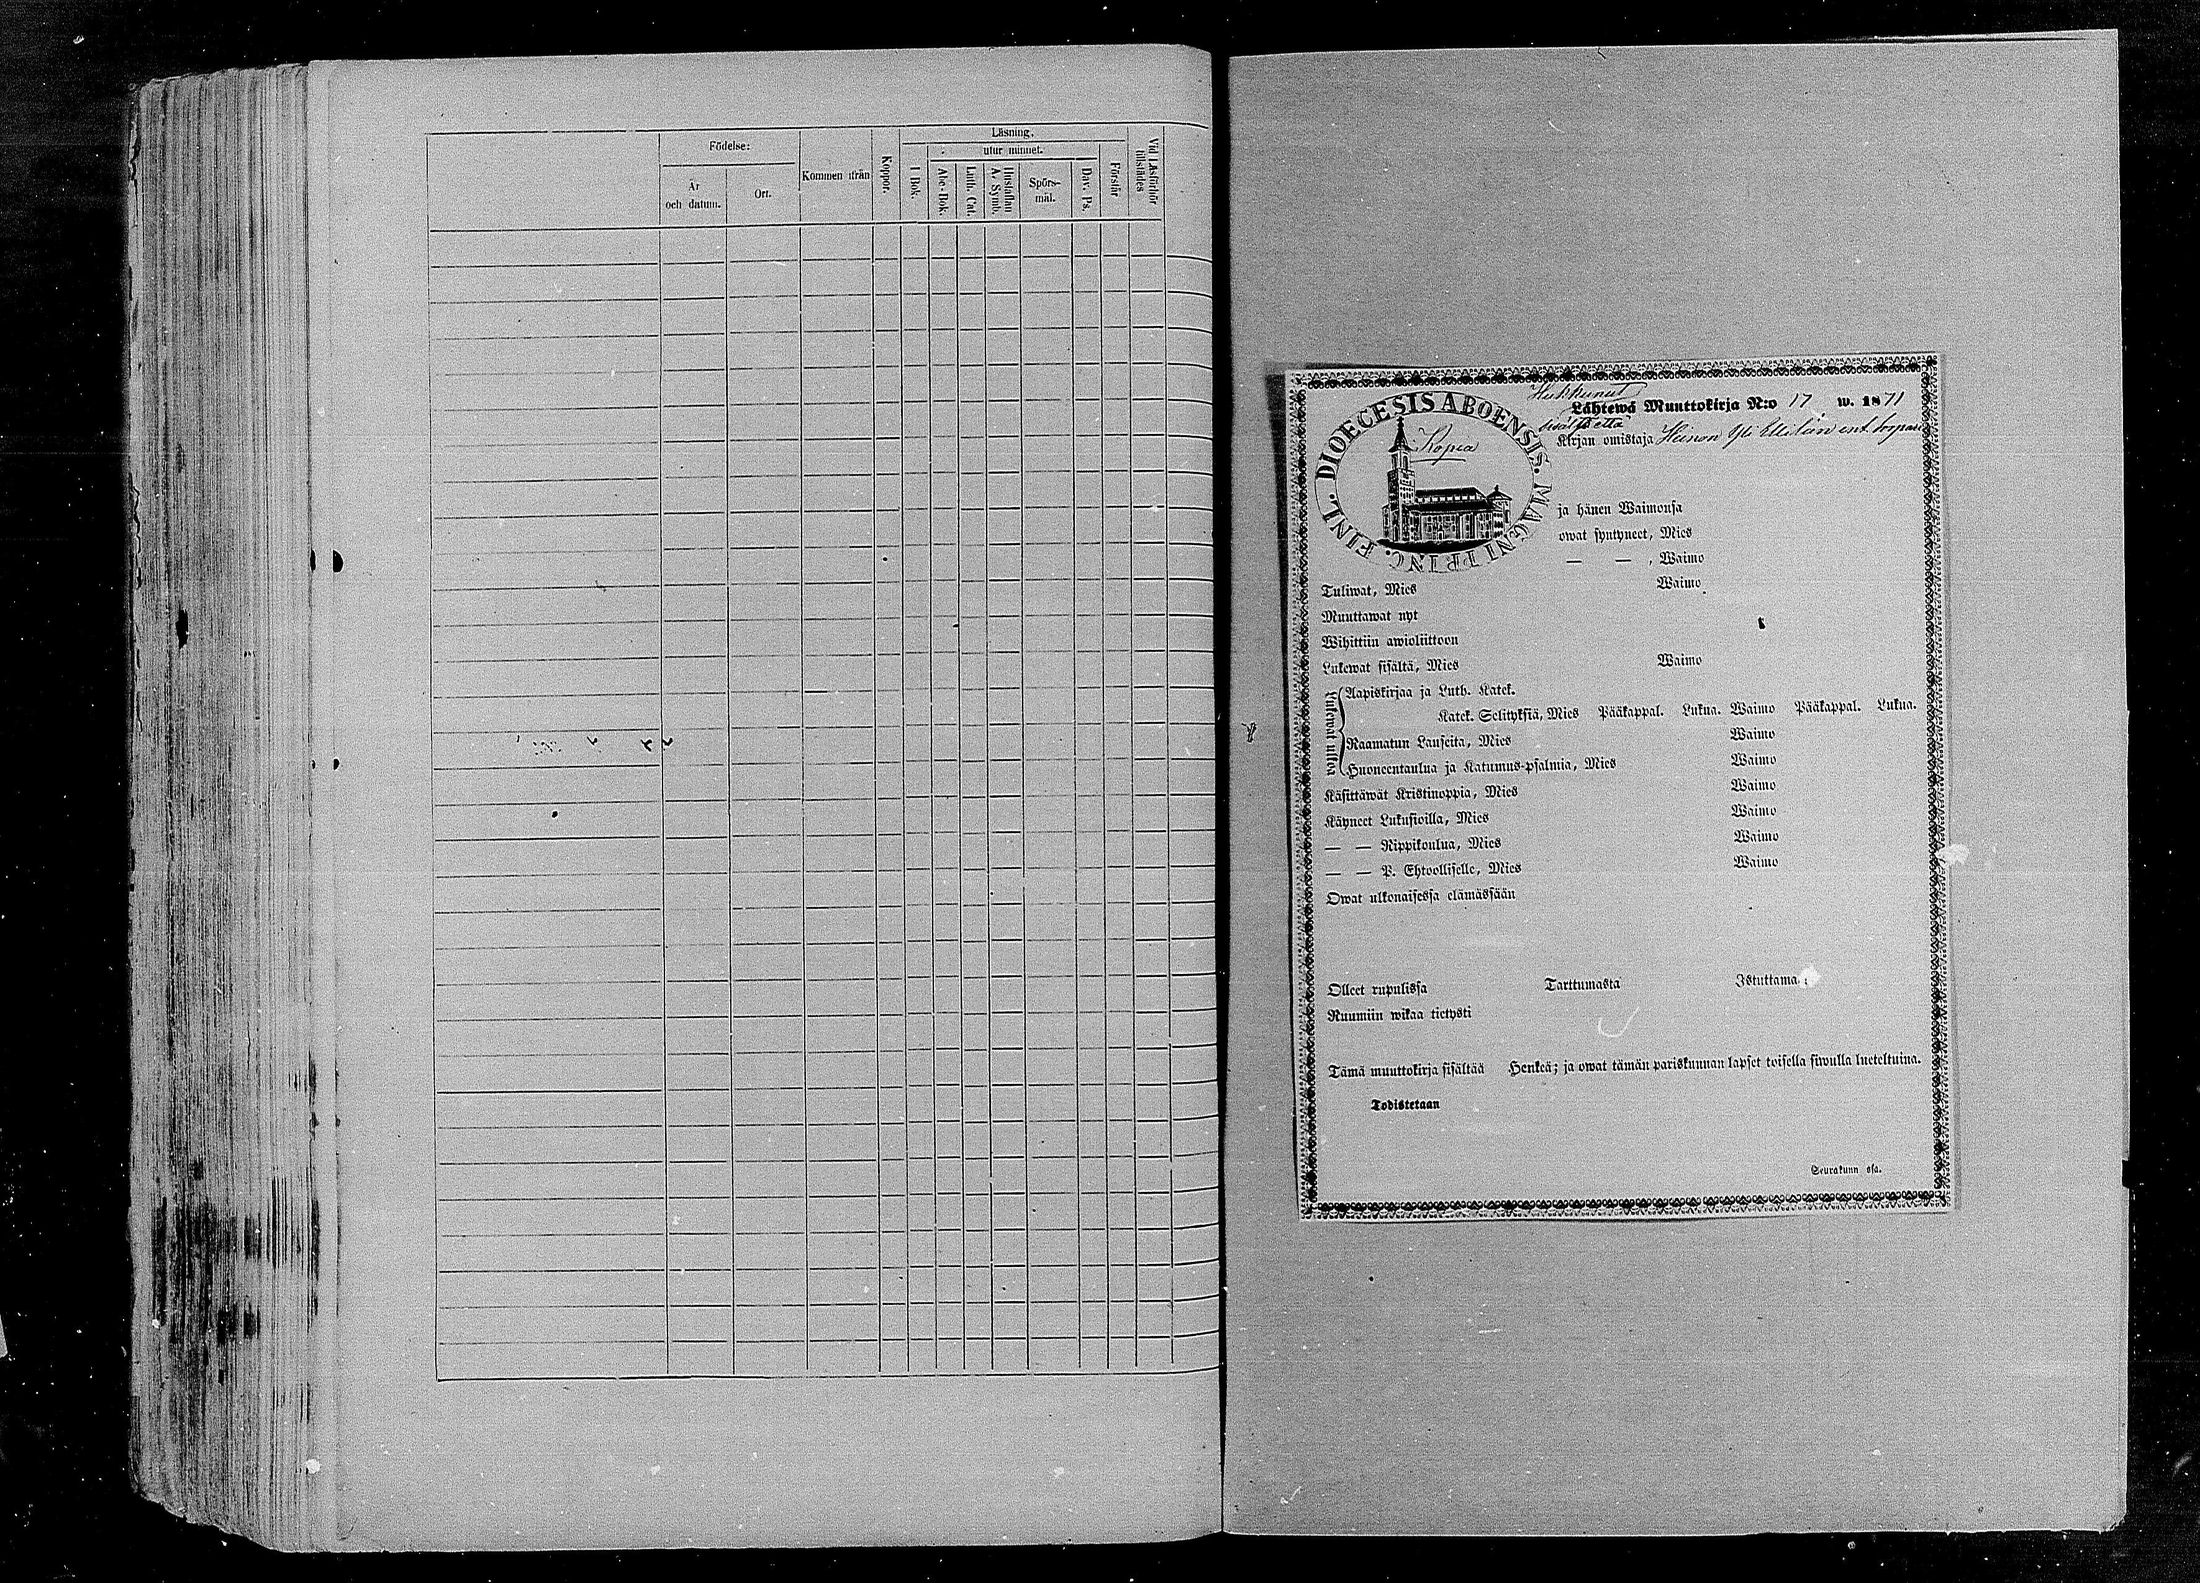 Födelse:
År
och datum.
Ort.
Kommen ifrån
Koppor.
Läsning,
utur minnet.
I Bok.
Abc-Bok.
Luth. Cat.
Hustaflan
A. Symb.
Spörs-
mål.
Dav. Ps.
Förstår
Vid Läsförhör
tillstädes
DIOECESIS ABOENSIS. MAGNI PRINC. FINL.
Kopia
Hukkunut
Lähtewä Muuttokirja N:o 17 w. 1871
sisälsi että
Kirjan omistaja Heinon Yli Ellilän ent. torpari
ja hänen Waimonsa
owat syntyneet, Mies
— — , Waimo
Tuliwat, Mies Waimo
Muuttawat nyt
Wihittiin awioliittoon
Lukewat sisältä, Mies Waimo
Lukewat ulkoa
Aapiskirjaa ja Luth. Katek.
Katek. Selityksiä, Mies Pääkappal. Lukua. Waimo Pääkappal. Lukua.
Raamatun Lauseita, Mies Waimo
Huoneentaulua ja Katumus-psalmia, Mies Waimo
Käsittäwät Kristinoppia, Mies Waimo
Käyneet Lukusioilla, Mies Waimo
— — Rippikoulua, Mies Waimo
— — P. Ehtoolliselle, Mies Waimo
Owat ulkonaisessa elämässään
Olleet rupulissa Tarttumasta Istuttama
Ruumiin wikaa tietysti
Tämä muuttokirja sisältää Henkeä; ja owat tämän pariskunnan lapset toisella siwulla lueteltuina.
Todistetaan
Seurakunn ssa.